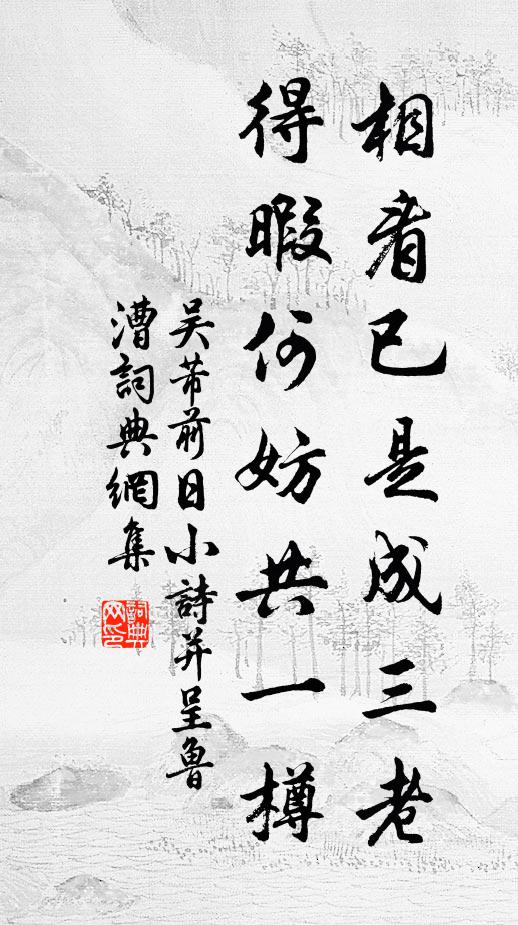 相看已是成三老
得暇何妨共一樽
吳芾前日小詩并呈魯
漕詞典網集
詞典網印